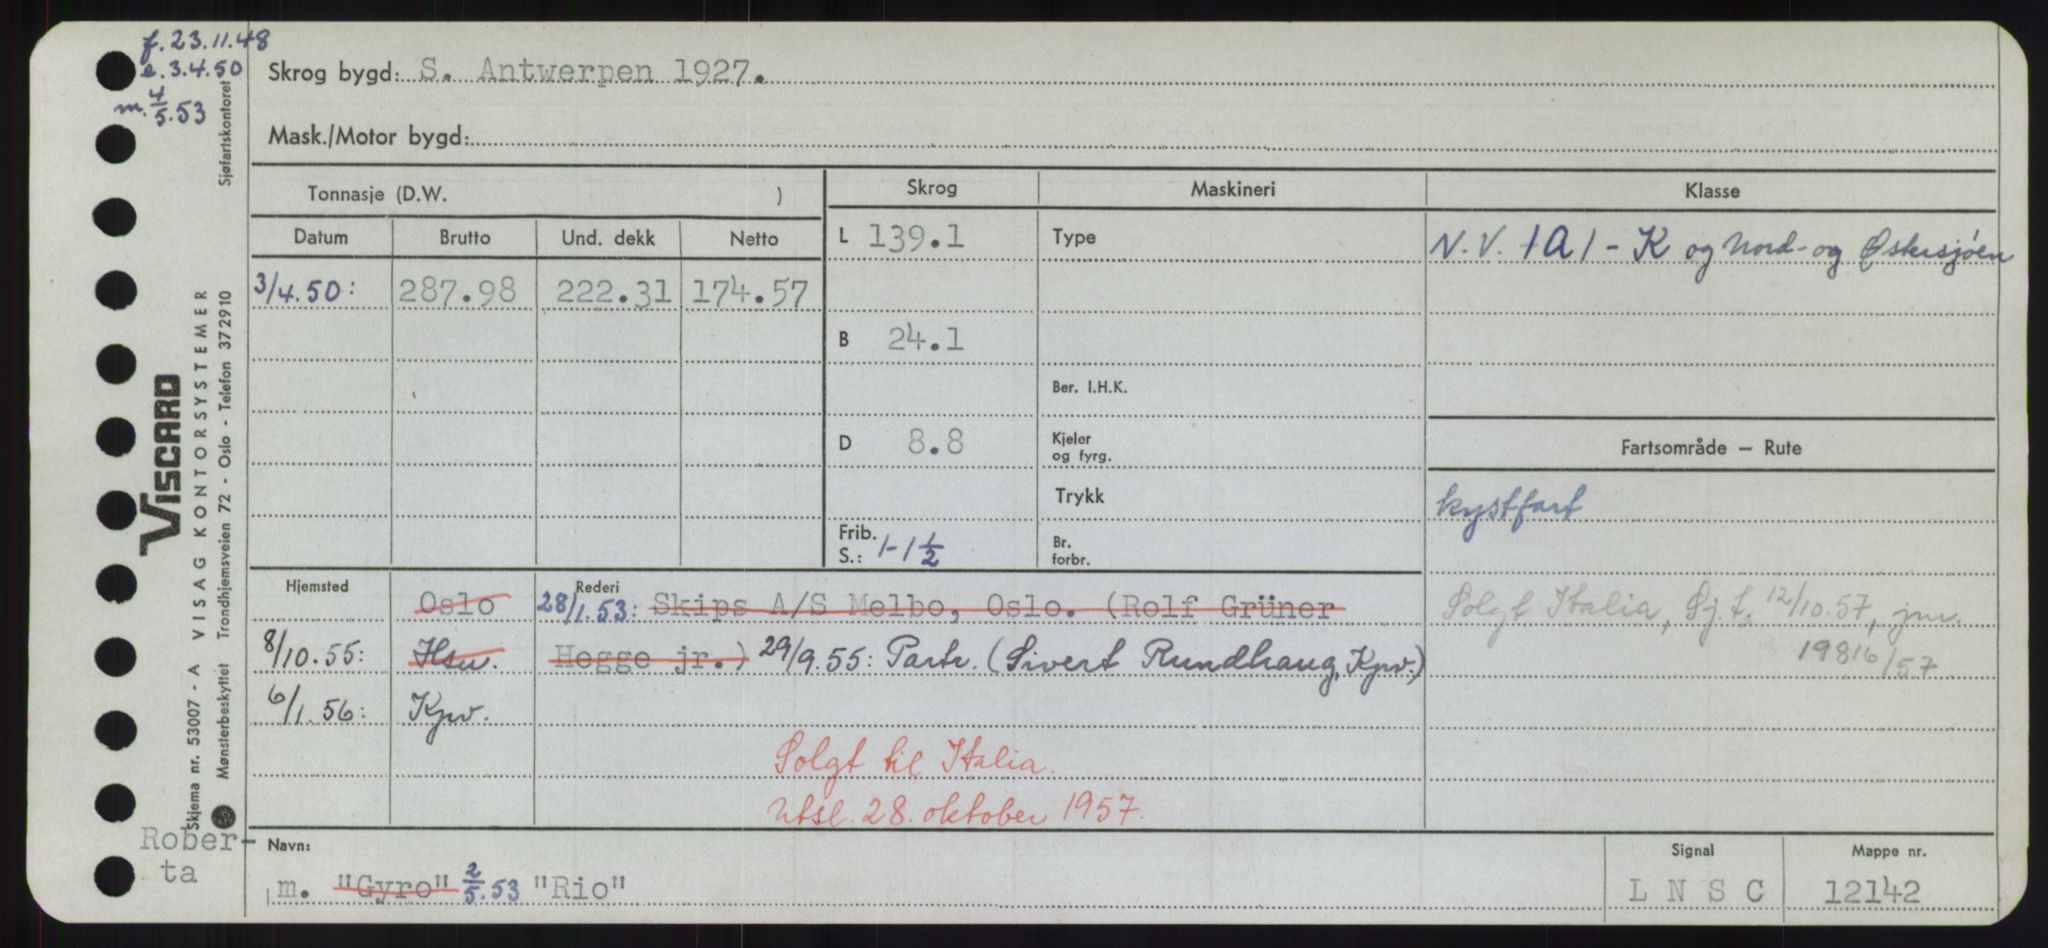 f. 23.11.48
e. 3.4.50
m. 4/5.53
Skrog bygd: S. Antwerpen 1927.
Mask./Motor bygd:
Tonnasje (D.W. )
Skrog
Maskineri
Klasse
Datum Brutto Und. dekk Netto
L 139.1
Type
N.V. 1A1 - K og Nord- og Østersjøen
3/4.50: 287.98 222.31 174.57
B 24.1
Ber. I.H.K.
D 8.8
Kjeler
og fyrg.
Fartsområde — Rute
Trykk
kystfart
Frib.
S.: 1-1 1/2
Br.
forbr.
Hjemsted
Oslo
Rederi
28/1.53: Skips A/S Melbo, Oslo. (Rolf Grüner
Solgt Italia, Sj.t. 12/10.57, jnr.
8/10.55: Hsu.
Hegge jr.) 29/9.55: Partr. (Sivert Rundhaug, Kpv.)
19816/57
6/1.56: Kpv.
Solgt til Italia.
Utsl. 28. oktober 1957.
Rober-
ta
Navn:
m. "Gyro" 2/5.53 "Rio"
Signal
L N S C
Mappe nr.
12142
Sjøfartskontoret
VISCARD
Skjema nr. 53007 - A VISAG KONTORSYSTEMER
Mønsterbeskyttet Trondhjemsveien 72 - Oslo - Telefon 372910